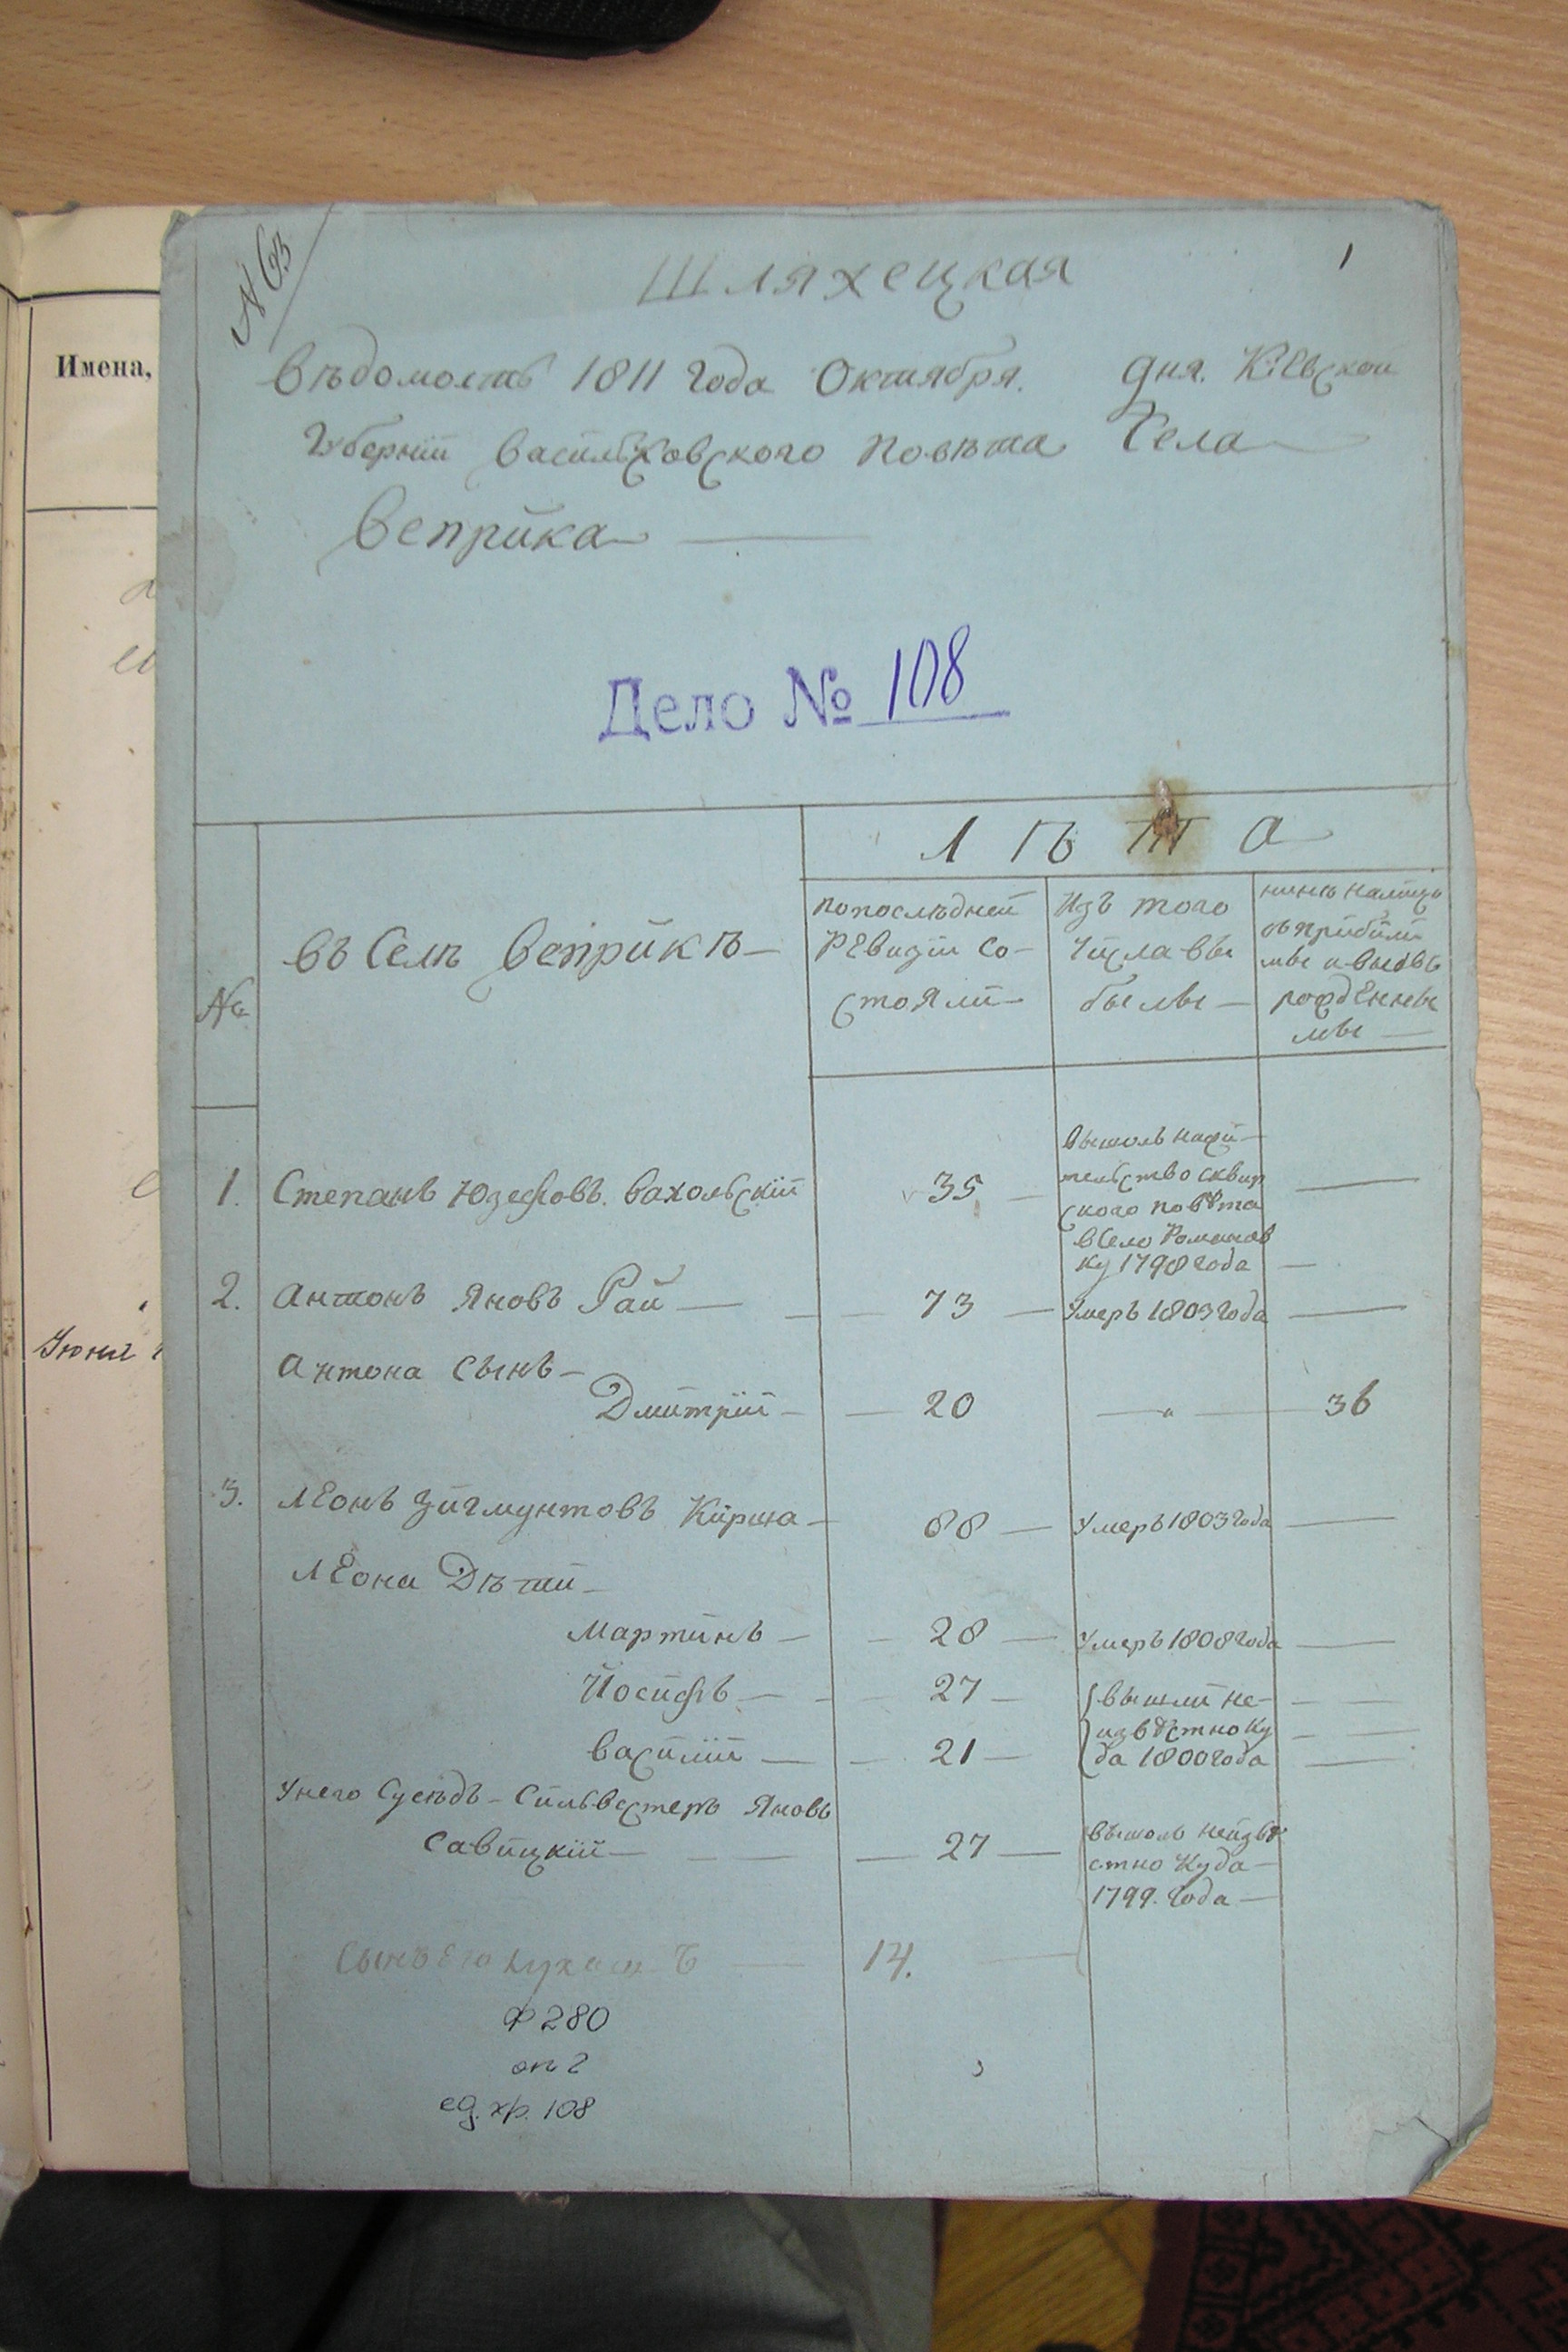 N 63
1
Шляхецкая
Вѣдомость 1811 года Октября. дня. Кіевской
Губернїи Васильковского Повѣта Села
Веприка
Дело № 108
Имена,
Лѣта
№
Въ Селѣ Веприкѣ
по последней
Ревизіи Со-
стояли
Изъ того
Числа вы
былые
нынѣ налицо
съ прибылы
мы и вновь
рожденны
мы
1. Степанъ Юзефовъ. Вахольскїй 35
вышолъ нажи-
тельство сквир
ского повѣта
в Село Романов
ку 1798 года
2. Антонъ Яновъ Рай 73 Умеръ 1803 года
Антона Сынъ
Дмитрїй 20 36
Июня
3. Леонъ Зигмунтовъ Кирша 68 Умеръ 1803 года
Леона Дѣти
Мартинъ 28 Умеръ 1808 года
Йосифъ 27 вышли не-
извѣстно ку
Василїй 21 да 1800 года
Унего Сусѣдъ Сильвестеръ Яновъ
Савицкїй 27
вышолъ неизвѣ
стно Куда
1799. года
Сынъ Его 14.
Ф 280
оп 2
ед. хр. 108